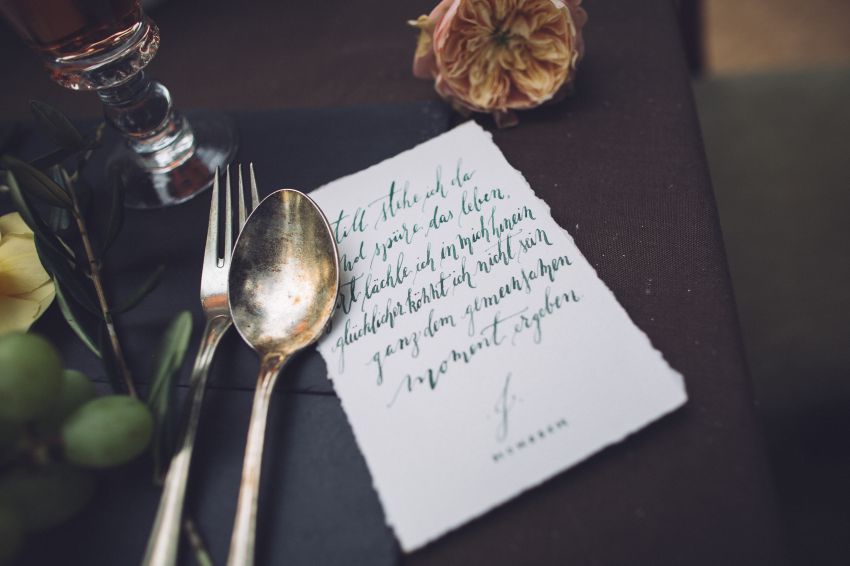 still stehe ich da
und spüre das leben,
lächle ich in mich hinein
glücklicher könnt ich nicht sein
ganz dem gemeinsamen
moment ergeben.